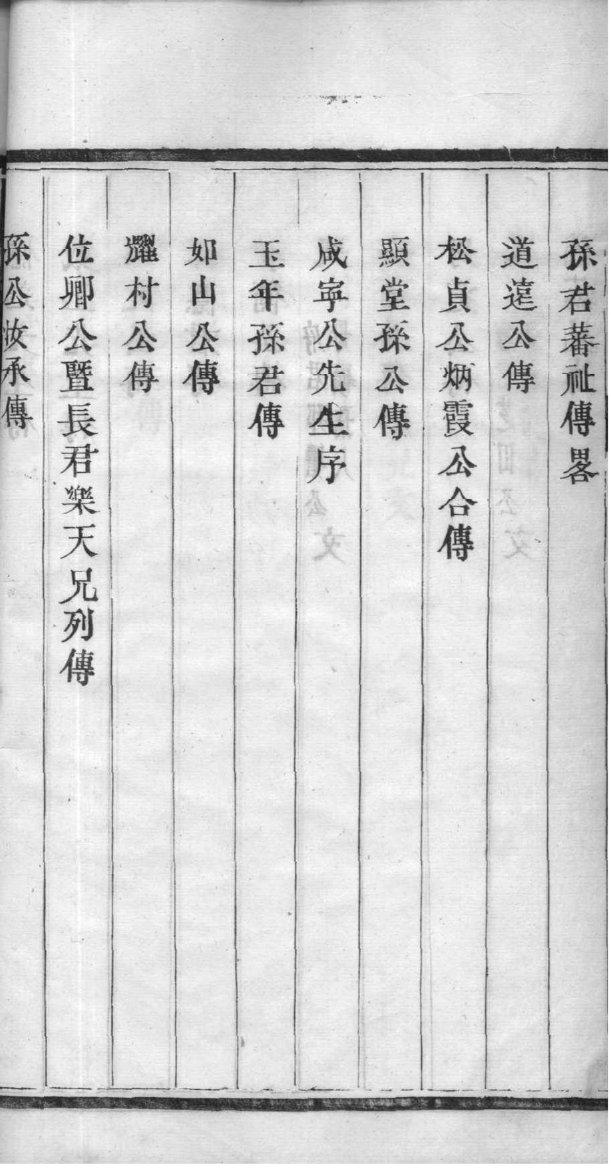 孫君蕃祉傳畧
道達公傳
松貞公炳霞公合傳
顯堂孫公傳
咸寧公先生序
玉年孫君傳
如山公傳
耀村公傳
位卿公暨長君樂天兄列傳
孫公汝承傳